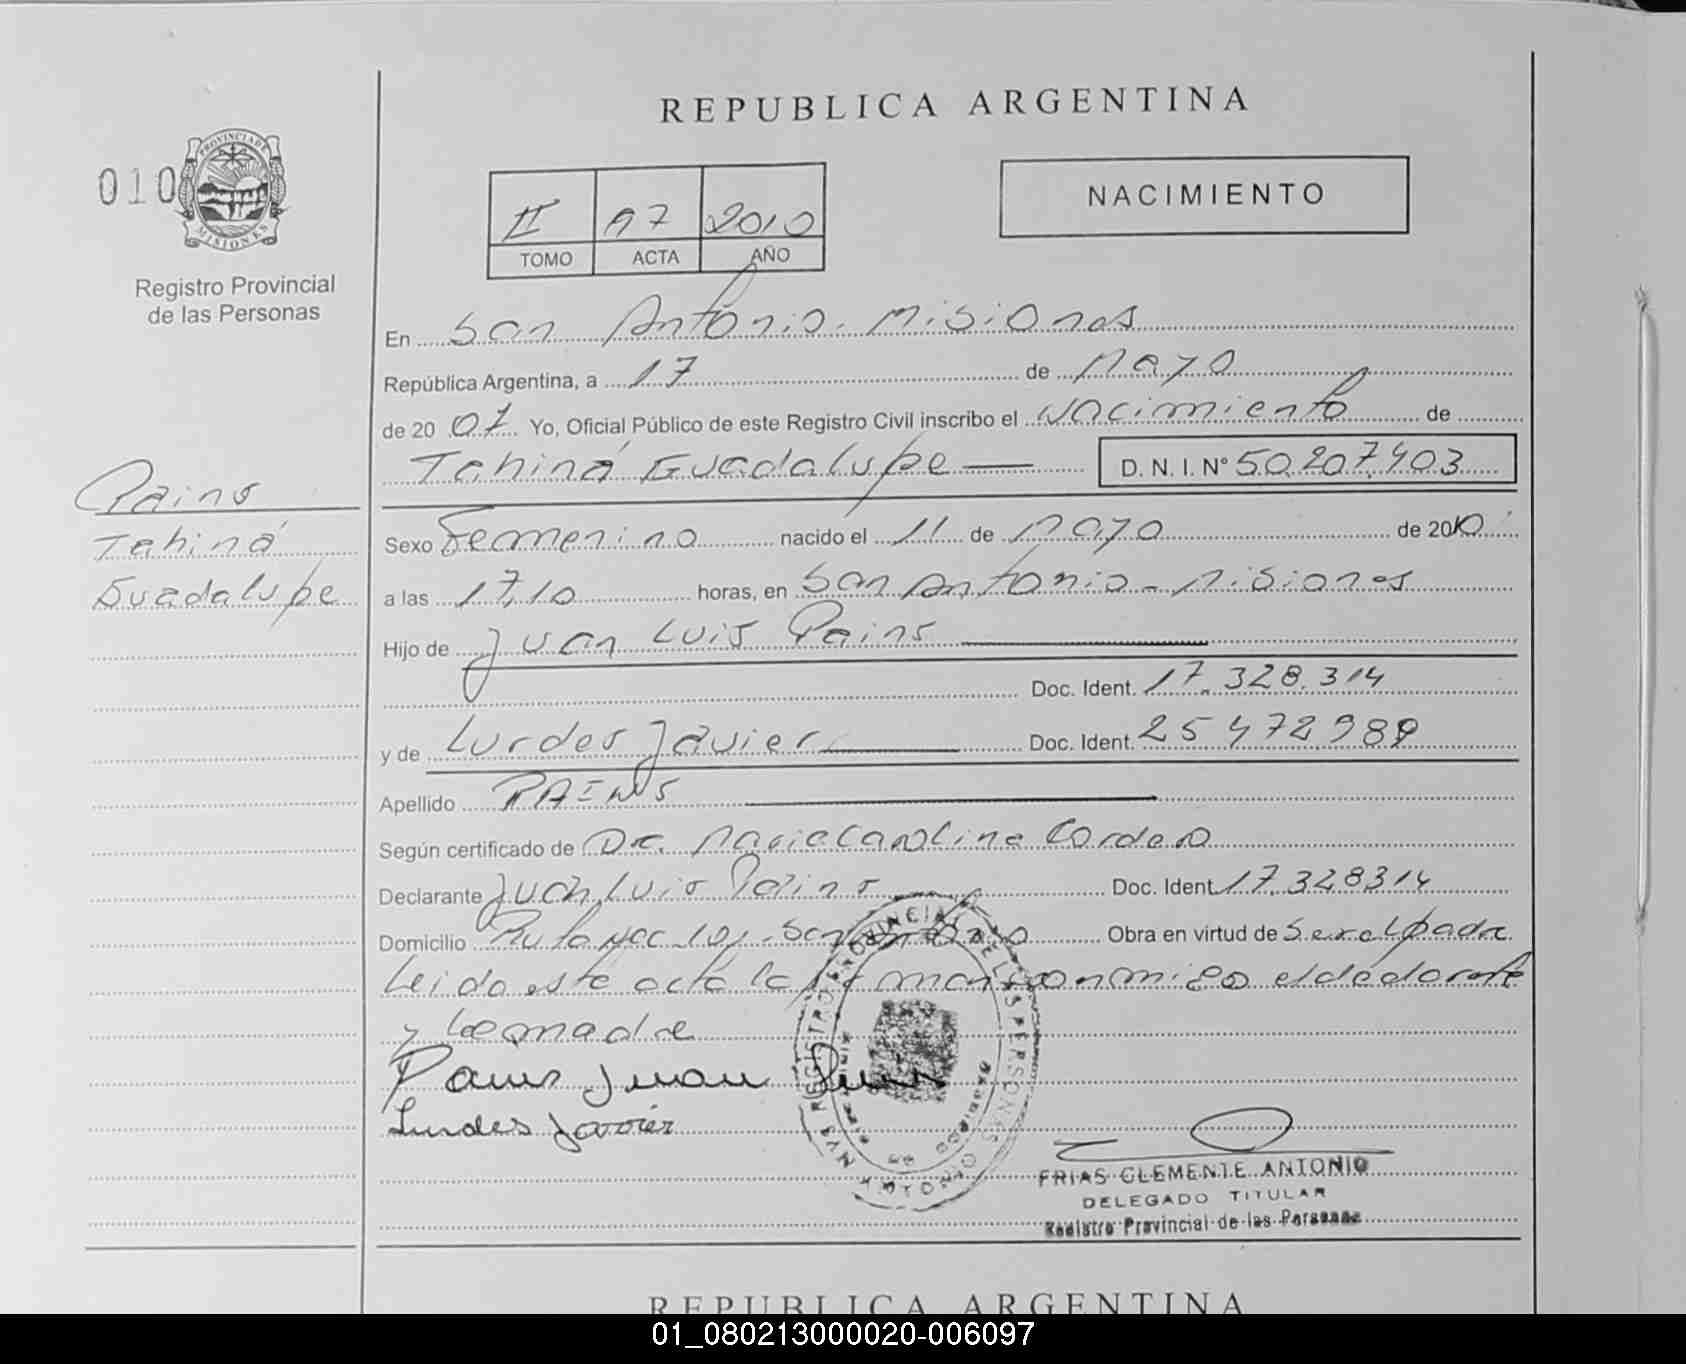 REPUBLICA ARGENTINA
010
PROVINCIA DE
MISIONES
Registro Provincial
de las Personas
II 97 2010
TOMO ACTA AÑO
NACIMIENTO
En San Antonio. Misiones
República Argentina, a 17 de Mayo
de 20 07 Yo, Oficial Público de este Registro Civil inscribo el Nacimiento de
Tahiná Guadalupe D. N. I. N° 50.207.403
Pains
Tahiná
Guadalupe
Sexo Femenino nacido el 11 de Mayo de 2010
a las 17,10 horas, en San Antonio - Misiones
Hijo de Juan Luis Pains
Doc. Ident. 17.328.314
y de Lurdes Javier Doc. Ident. 25 472.989
Apellido PAINS
Según certificado de Dr. Maria Carolina Cordero
Declarante Juan Luis Pains Doc. Ident 17.328314
Domicilio Ruta Nac 101 - San Antonio Obra en virtud de Ser el padre
Leida este acta la firman conmigo el declarante
y la madre
Pains Juan Luis
Lurdes Javier
REGISTRO PROVINCIAL DE LAS PERSONAS
FRIAS CLEMENTE ANTONIO
DELEGADO TITULAR
Registro Provincial de las Personas
REPUBLICA ARGENTINA
01_080213000020-006097